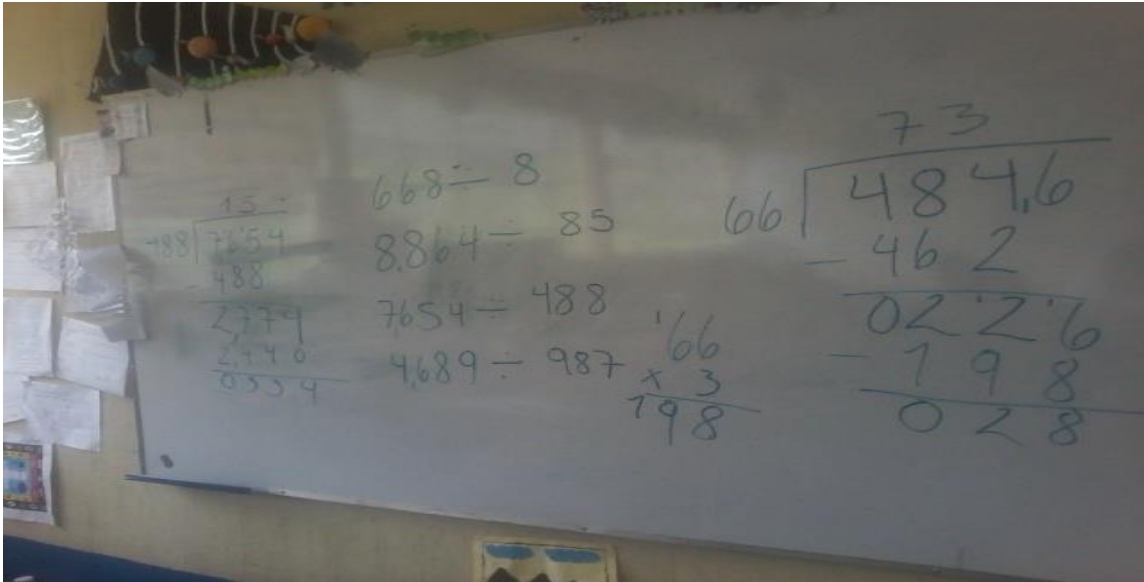 15
488 7654
- 488
2,774
2,440
0334
668 ÷ 8
8,864 ÷ 85
7,654 ÷ 488
4,689 ÷ 987
66
x 3
198
73
66 484,6
- 462
0226
- 198
028